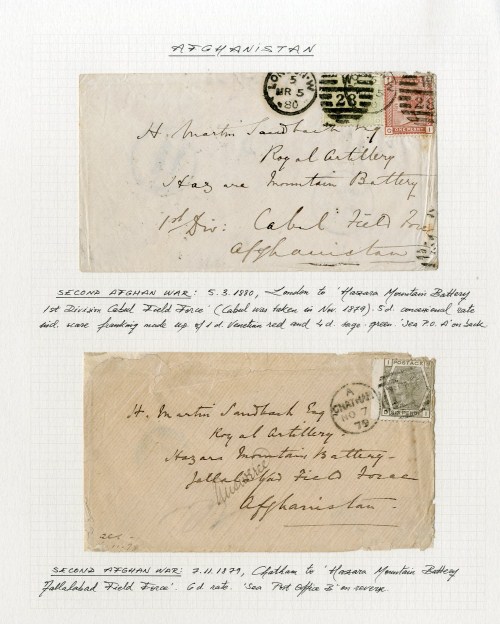 AFGHANISTAN
LONDON·W
5
MR 5
80
W
28
28
ONE PENNY
H. Martin Sandbach Esq
Royal Artillery
Hazara Mountain Battery
1st Div: Cabul Field Force
Afghanistan
SECOND AFGHAN WAR: 5.3.1880, London to 'Hazara Mountain Battery
1st Division Cabul Field Force' (Cabul was taken in Nov. 1879). 5d. concessional rate
incl. scarce franking made up of 1d. Venetian red and 4d. sage-green. 'Sea P.O. A' on back
A
CHATHAM
NO 7
79
POSTAGE
SIX PENCE
H. Martin Sandbach Esq
Royal Artillery
Hazara Mountain Battery
Jallalabad Field Force
Afghanistan.
SECOND AFGHAN WAR: 7.11.1879, Chatham to 'Hazara Mountain Battery
Jallalabad Field Force'. 6d rate. 'Sea Post Office B' on reverse